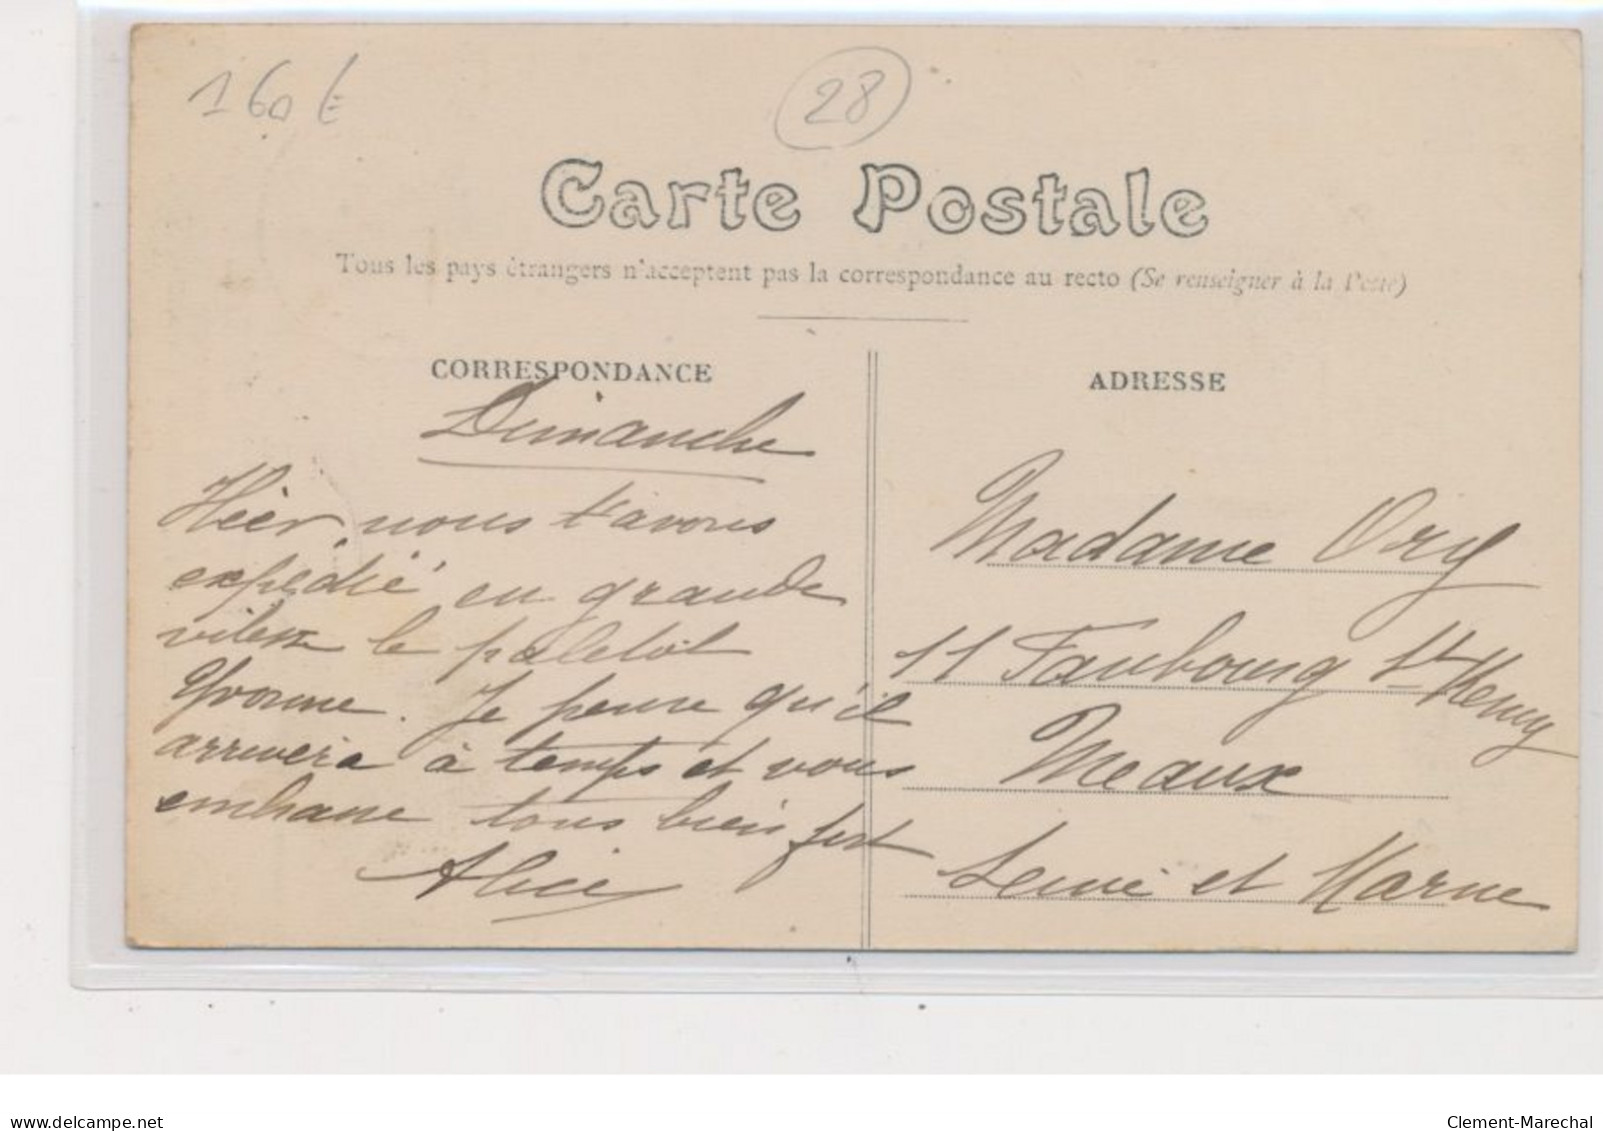 160 €
28
Carte Postale
Tous les pays étrangers n'acceptent pas la correspondance au recto (Se renseigner à la Poste)
CORRESPONDANCE
Dimanche
Hier, nous t'avons
expédié en grande
vitesse le paletot
Yvonne. Je pense qu'il
arrivera à temps et vous
embrasse tous bien fort
Alice
ADRESSE
Madame Ory
11 Faubourg St Remy
Meaux
Seine et Marne
delcampe.net
Clement-Marechal